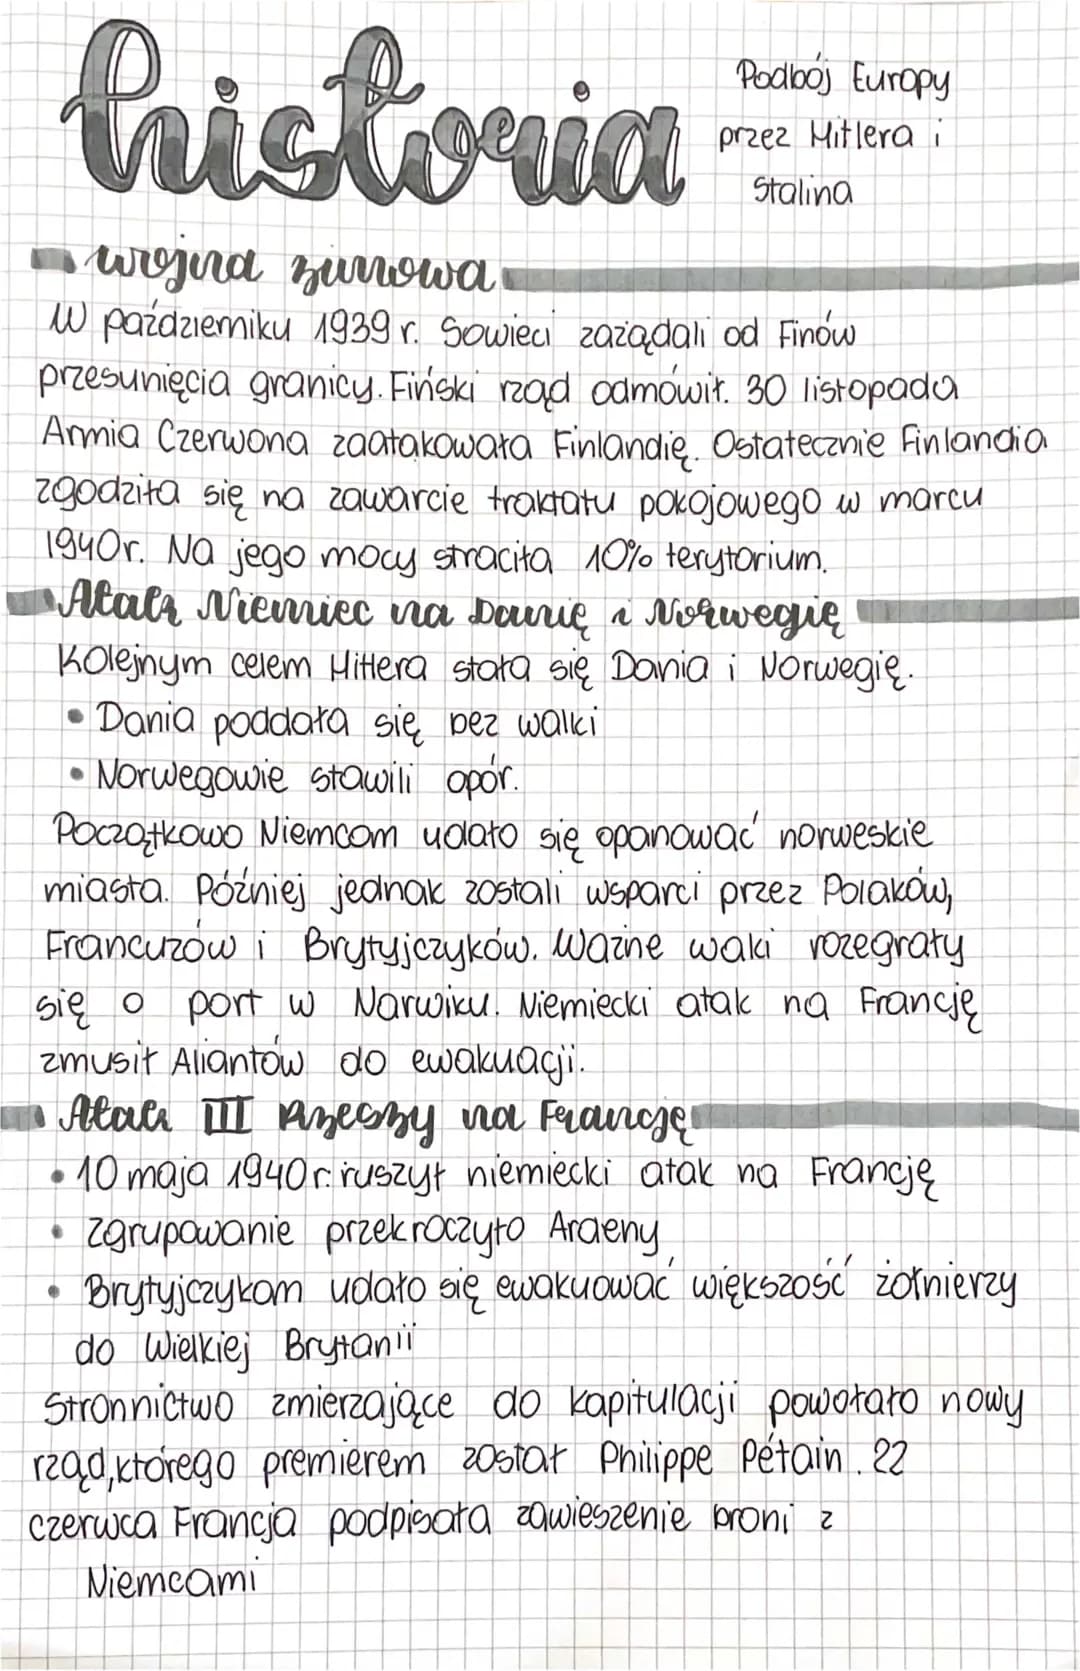 historia
Podbój Europy
przez Hitlera i
Stalina
wojna zimowa
W październiku 1939 r. Sowieci zażądali od Finów
przesunięcia granicy. Fiński rząd odmówił. 30 listopada
Armia Czerwona zaatakowała Finlandię. Ostatecznie Finlandia
zgodziła się na zawarcie traktatu pokojowego w marcu
1940r. Na jego mocy straciła 10% terytorium.
Atak Niemiec na Danię i Norwegię
Kolejnym celem Hitlera stała się Dania i Norwegię.
• Dania poddała się bez walki
• Norwegowie stawili opór.
Początkowo Niemcom udało się opanować norweskie
miasta. Później jednak zostali wsparci przez Polaków,
Francuzów i Brytyjczyków. Ważne waki rozegrały
się o port w Narwiku. Niemiecki atak na Francję
zmusił Aliantów do ewakuacji.
Atak III Rzeszy na Francję
• 10 maja 1940r. ruszył niemiecki atak na Francję
• Zgrupowanie przekroczyło Ardeny
• Brytyjczykom udało się ewakuować większość żołnierzy
do Wielkiej Brytanii
Stronnictwo zmierzające do kapitulacji powołało nowy
rząd, którego premierem został Philippe Pétain. 22
czerwca Francja podpisała zawieszenie broni z
Niemcami